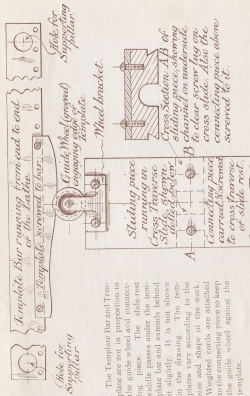 Hole for
Supporting
Pillar.
Template Bar running from end to end
of the Lathe
Template screwed to bar
Hole for
Supporting
Pillar
Guide Wheel (grooved)
engaging edge of
Template.
Wheel bracket.
Sliding piece
running in
Cross channel in
Slide, shown
dotted below
A
B
Connecting piece
carried & screwed
to cross traverse
of slide rest
Cross Section AB of
sliding piece, shewing
channel on underside
to clear screw lug on
cross slide. Also the
connecting piece above
screwed to it.
The Template Bar and Tem-
plate are not in proportion to
the guide wheel and connect-
ing piece. The slide-rest
saddle passes under the tem-
plate bar and extends behind
it slightly. It is not shewn
in the drawing. The tem-
plates vary according to the
size and shape of the work.
Weighted cords are attached
to the connecting piece to keep
the guide wheel against the
template.